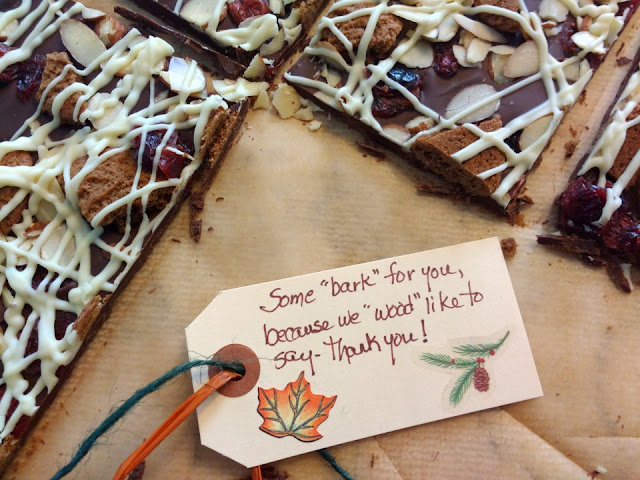 Some "bark" for you,
because we "wood" like to
say - thank you!